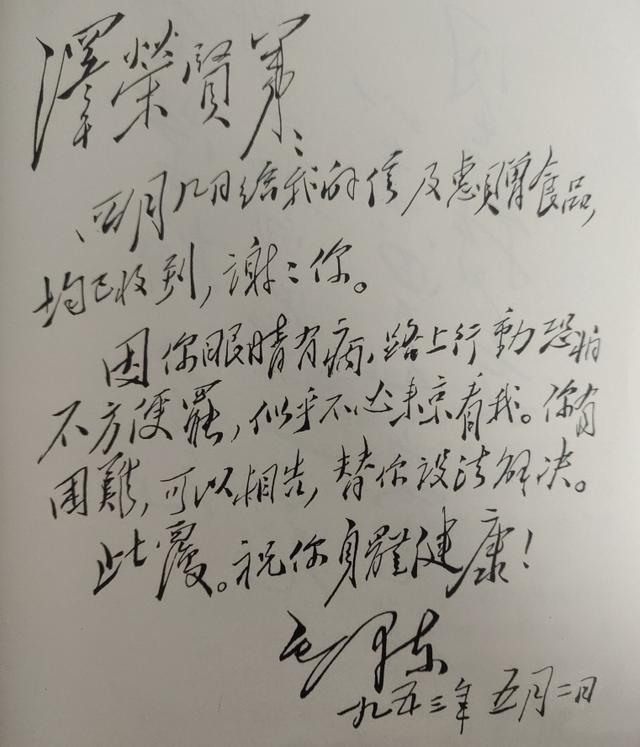 澤榮賢弟：
四月几日给我的信及惠贈食品，
均已收到，謝〻你。
因你眼睛有病，路上行動恐怕
不方便罷，似乎不必来京看我。你有
困難，可以相告，替你设法解决。
此覆。祝你身體健康！
毛澤东
一九五三年 五月二日